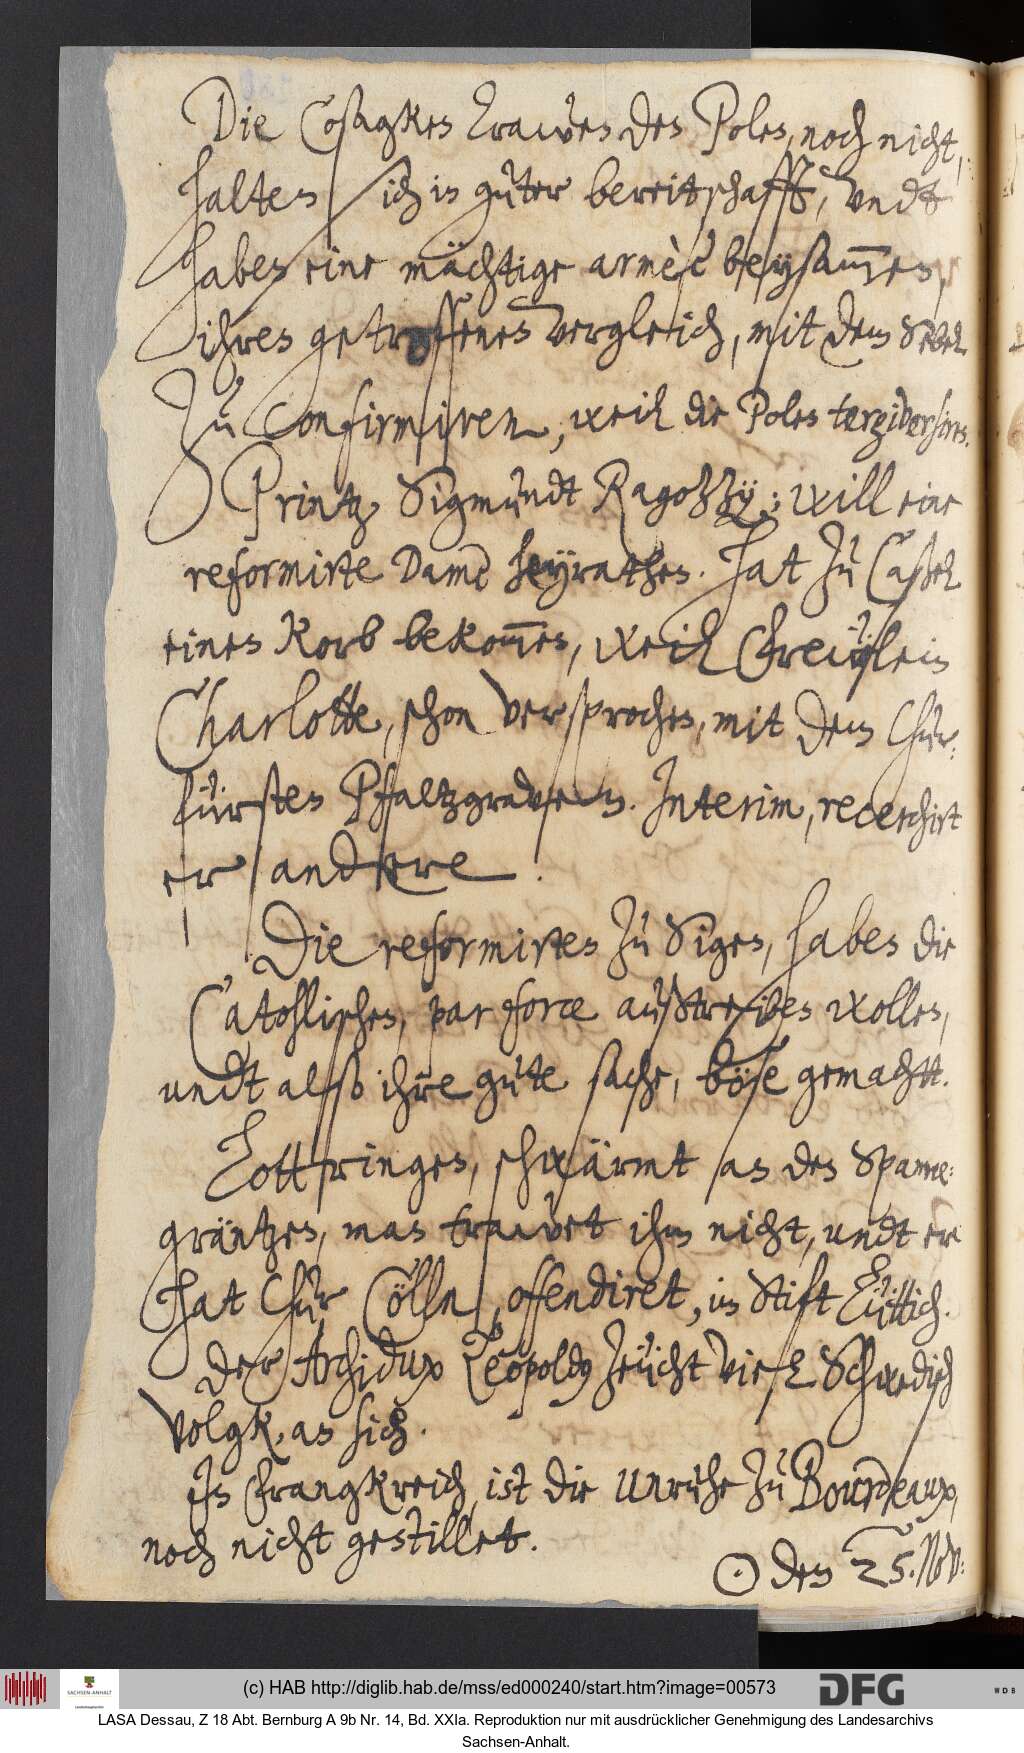 Die Cosagken trawen den Polen, noch nicht,
halten sich in guter bereitschafft, undt
haben eine mächtige armèe beysam̅en,
ihren getroffenen vergleich, mit dem Sebel
zu confirmiren, weil die Polen tergiversiren.
Printz Sigmundt Ragozzy: will eine
reformirte Dame heyrathen. Hat zu Caßel
einen Korb bekom̅en, weil Frewlein
Charlotte, schon versprochen, mit dem Chur-
fürsten Pfaltzgraven. Interim, recerchirt
er andere.
Die reformirten zu Sigen, haben die
Catohlischen, par force außtreiben wollen,
undt also ihre gute sache, böse gemachtt.
Lottringen, schwärmt an den Spanne:
gräntzen, man trawet ihm nicht, undt er
hat Chur Cölln, offendiret, im Stift Lüttich.
Der Archidux Leopoldus zeucht viel Schwedisch
Volgk, an sich.
In Frangkreich, ist die unruhe zu Bourdeaux,
noch nicht gestillet.
⊙ den 25. Nov:
(c) HAB http://diglib.hab.de/mss/ed000240/start.htm?image=00573
SACHSEN-ANHALT
DFG
WDB
LASA Dessau, Z 18 Abt. Bernburg A 9b Nr. 14, Bd. XXIa. Reproduktion nur mit ausdrücklicher Genehmigung des Landesarchivs
Sachsen-Anhalt.